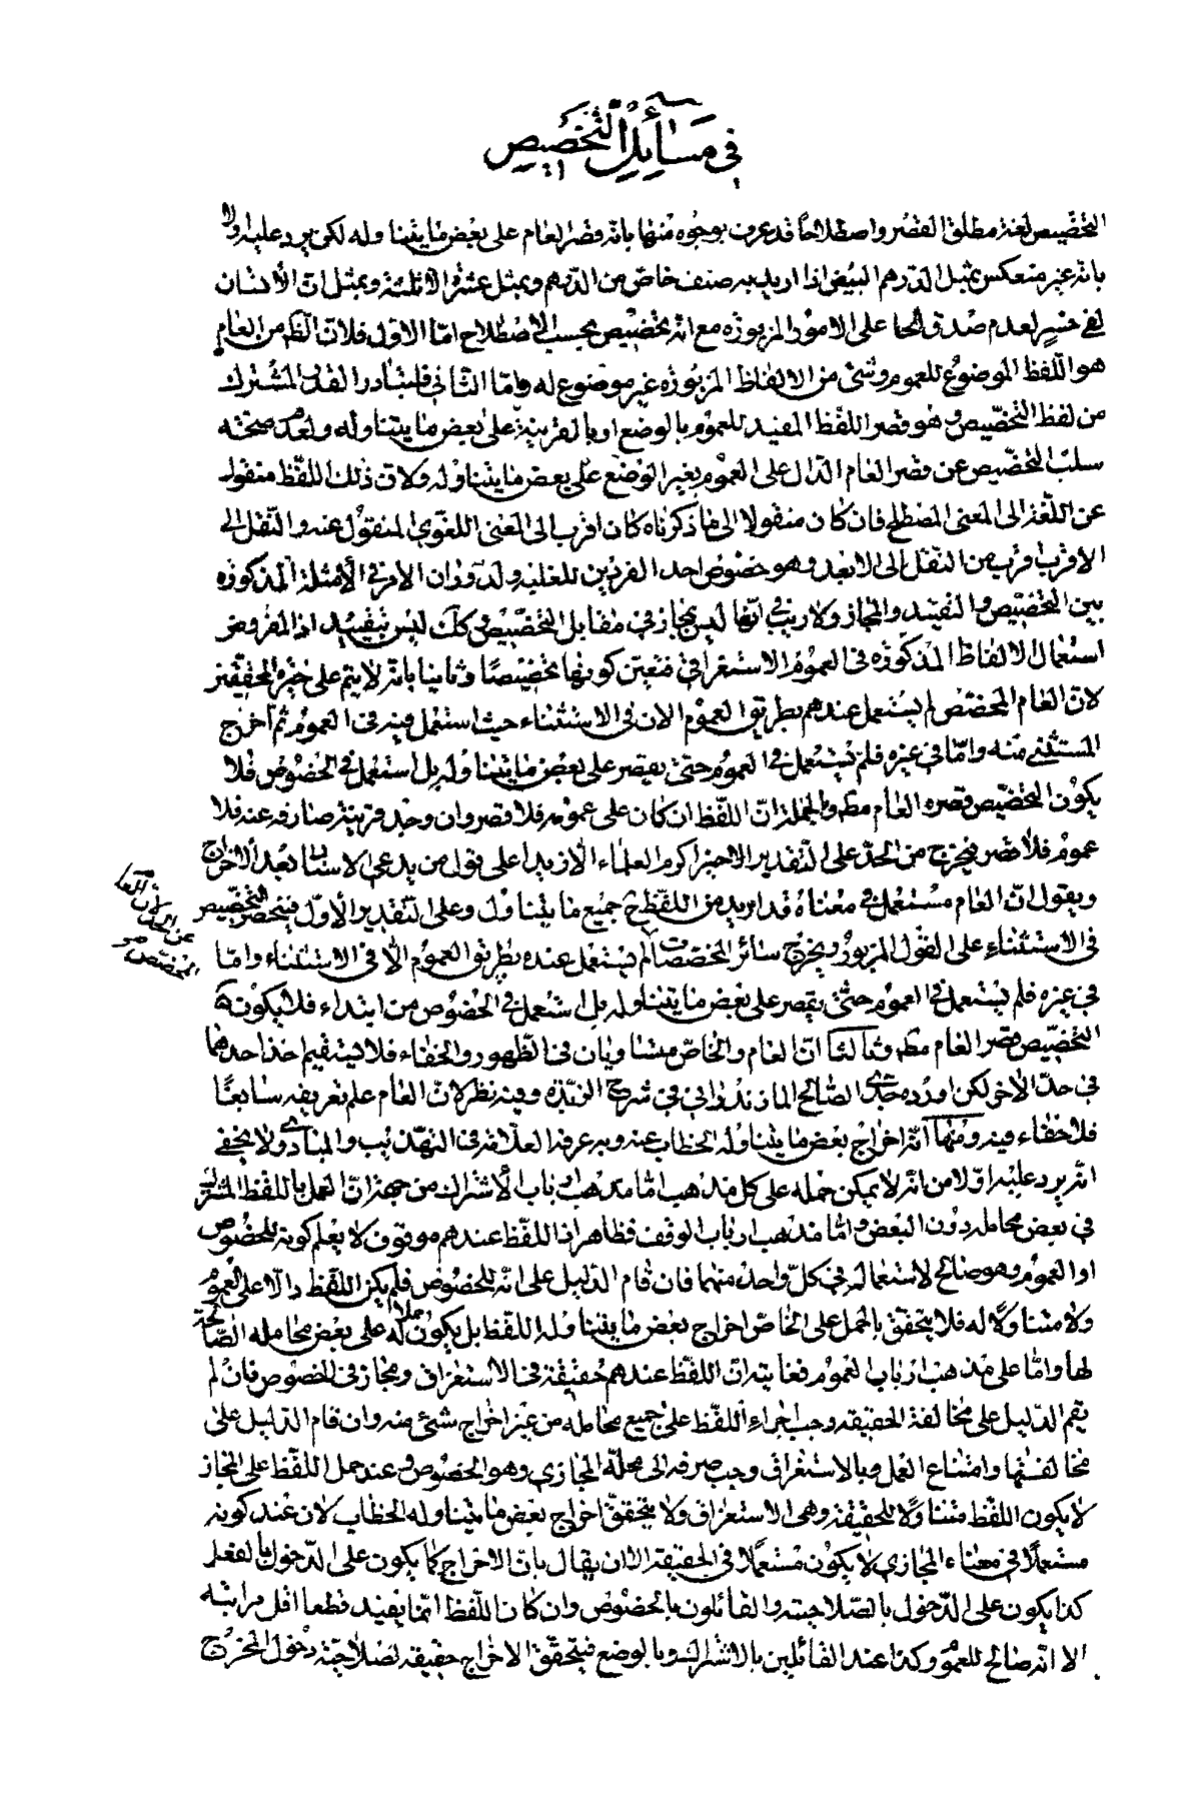 في مسائل التخصيص
التخصيص لغة مطلق القصر واصطلاحا قد عرف بوجوه منها بانه قصر العام على بعض ما يتناوله لكن يرد عليه اولا
بانه غير منعكس بمثل الدرهم البيض اذا اريد به صنف خاص من الدرهم وبمثل عشرة الا ثلثة وبمثل ان الانسان
لفي خسر لعدم صدق الحد على الامور المزبورة مع انه تخصيص بحسب الاصطلاح اما الاول فلان الظ من العام
هو اللفظ الموضوع للعموم وشئ من الالفاظ المزبورة غير موضوع له واما الثاني فلتبادر القدر المشترك
من لفظ التخصيص وهو قصر اللفظ المفيد للعموم بالوضع او بالقرينة على بعض ما يتناوله ولعدم صحته
سلب التخصيص عن قصر العام الدال على العموم بغير الوضع على بعض ما يتناوله ولان ذلك اللفظ منقول
عن اللغة الى المعنى المصطلح فان كان منقولا الى ما ذكرناه كان اقرب الى المعنى اللغوى المنقول عنه والنقل الى
الاقرب اقرب من النقل الى الابعد وهو خصوص احد الفردين للغلبة ولدوران الامر في الامثلة المذكورة
بين التخصيص والتقييد والمجاز ولا ريب في انها ليس بمجاز في مقابل التخصيص وكك ليس بتقييد اذ المفروض
استعمال الالفاظ المذكورة في العموم الاستغراقي فتعين كونها تخصيصا وثانيا بانه لا يتم على خيرة المحققين
لان العام المخصص لم يستعمل عندهم بطريق العموم الا في الاستثناء حيث استعمل فيه في العموم ثم اخرج
المستثنى منه واما في غيره فلم يستعمل في العموم حتى يقصر على بعض ما يتناوله بل استعمل في الخصوص فلا
يكون التخصيص قصره العام مطم وبالجملة ان اللفظ ان كان على عمومه فلا قصر وان وجد قرينة صارفة عنه فلا
عموم فلا قصر فيخرج من الحد على التقدير الاخير اكرم العلماء الا زيدا على قول من يدعى الاسناد بعد الاخراج
ويقول ان العام مستعمل في معناه قد اريد من اللفظ ح جميع ما يتناوله وعلى التقدير الأول فينحصر التخصيص
عن الحد لان العام
المخصص
في الاستثناء على القول المزبور ويخرج سائر المخصصات لم يستعمل عنده بطريق العموم الا في الاستثناء واما
في غيره فلم يستعمل في العموم حتى يقصر على بعض ما يتناوله بل استعمل في الخصوص من ابتداء فلا يكون
التخصيص قصر العام مطم وثالثا ان العام والخاص متساويان في الظهور والخفاء فلا يستقيم اخذ احدهما
في حد الآخر لكن اورده جدى الصالح المازندراني في شرح الزبدة وفيه نظر لان العام علم تعريفه سابقا
فلا خفاء فيه ومنها انه اخراج بعض ما يتناوله الخطاب عنه وبه عرفه العلامة في التهذيب والمبادى ولا يخفى
انه يرد عليه اولا من انه لا يمكن حمله على كل مذهب اما مذهب ارباب الأشتراك من جهة ان العمل باللفظ المشترك
في بعض محامله دون البعض واما مذهب ارباب الوقف فظاهر اذ اللفظ عندهم موقوف لا يعلم كونه للخصوص
او العموم وهو صالح لاستعماله في كل واحد منهما فان قام الدليل على انه للخصوص فلم يكن اللفظ دالا على العموم
ولا متناولا له فلا يتحقق بالحمل على الخاص اخراج بعض ما يتناوله اللفظ بل يكون حملا له على بعض محامله الصالحة
لها واما على مذهب ارباب العموم فغايته ان اللفظ عندهم حقيقة في الاستغراق ومجاز في الخصوص فان لم
يقم الدليل على مخالفة الحقيقة وجب اجراء اللفظ على جميع محامله من غير اخراج شئ منه وان قام الدليل على
مخالفتها وامتناع العمل وبالاستغراق وجب صرفه الى محله المجازى وهو الخصوص وعند حمل اللفظ على المجاز
لا يكون اللفظ متناولا للحقيقة وهى الاستغراق ولا يتحقق اخراج بعض ما يتناوله الخطاب لان عند كونه
مستعملا في معناه المجازى لا يكون مستعملا في الحقيقة الا ان يقال بان الاخراج كما يكون على الدخول بالفعل
كذا يكون على الدخول بالصلاحية والقائلون بالخصوص وان كان اللفظ انما يفيد قطعا اقل مراتبه
الا انه صالح للعموم وكذا عند القائلين بالاشتراك وبالوضع فيتحقق الاخراج حقيقة لصلاحية دخول المخرج